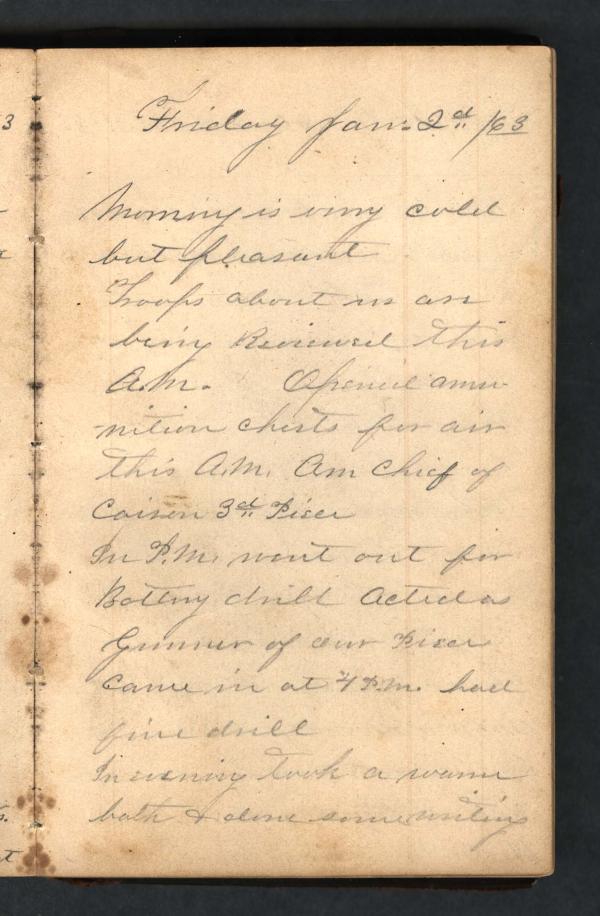 Friday Jan. 2d /63
Morning is very cold
but pleasant
Troops about us are
being Reviewed this
A.M. Opened amu-
nition chests for air
this A.M. Am Chief of
Caison 3d Piece
In P.M. went out for
Battery drill Acted as
Gunner of our Piece
Came in at 4 P.M. had
fine drill
In evening took a warm
bath & done some writing